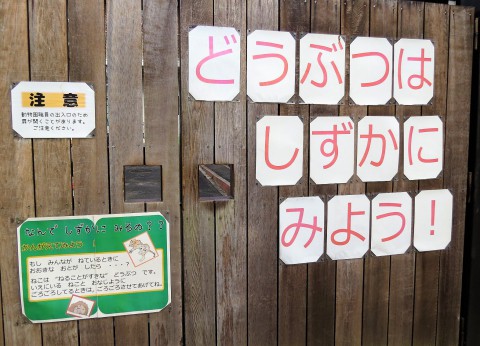 どうぶつは
しずかに
みよう！
注 意
動物園職員の出入口のため
扉が開くことがあります。
ご注意ください。
なんで しずかに みるの？？
もし みんなが ねているときに
おおきな おとが したら ・・・？
ねこは “ねることがすきな” どうぶつ です。
いえにいる ねこと おなじように
ごろごろしてるときは、ごろごろさせてあげてね。